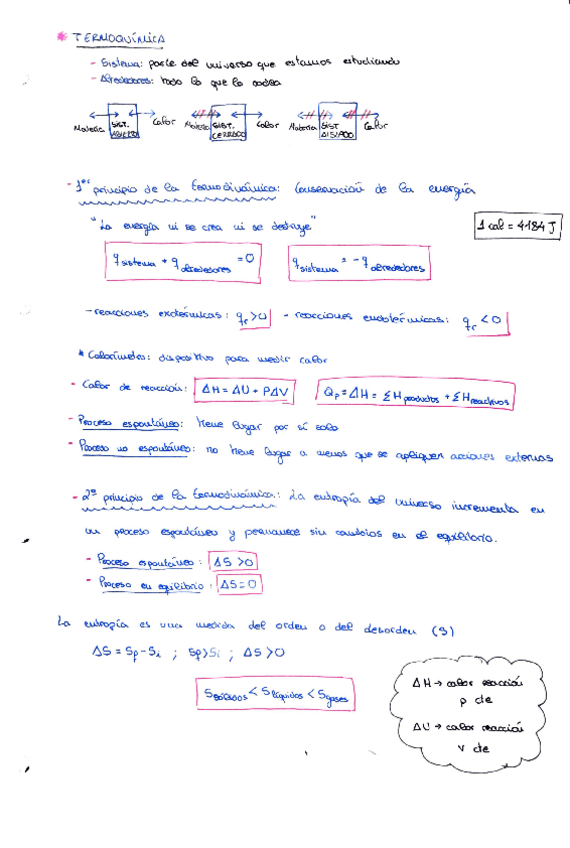 * TERMOQUÍMICA
- Sistema: parte del universo que estamos estudiando
- Alrededores: todo lo que lo rodea
Materia SIST. ABIERTO Calor Materia SIST. CERRADO Calor Materia SIST AISLADO Calor
- 1er principio de la termodinámica: Conservación de la energía
"La energía ni se crea ni se destruye"
1 cal = 4184 J
q sistema + q alrededores = 0 q sistema = - q alrededores
- reacciones exotérmicas: qr > 0 - reacciones endotérmicas: qr < 0
* Calorímetro: dispositivo para medir calor
- Calor de reacción: ΔH = ΔU + PΔV Qp = ΔH = ΣH productos + ΣH reactivos
- Proceso espontáneo: tiene lugar por sí solo
- Proceso no espontáneo: no tiene lugar a menos que se apliquen acciones externas
- 2º principio de la termodinámica: La entropía del universo incrementa en
un proceso espontáneo y permanece sin cambios en el equilibrio.
- Proceso espontáneo: ΔS > 0
- Proceso en equilibrio: ΔS = 0
La entropía es una medida del orden o del desorden (S)
ΔS = Sp - Si ; Sp > Si ; ΔS > 0
S sólidos < S líquidos < S gases
ΔH → calor reacción
p cte
ΔU → calor reacción
v cte